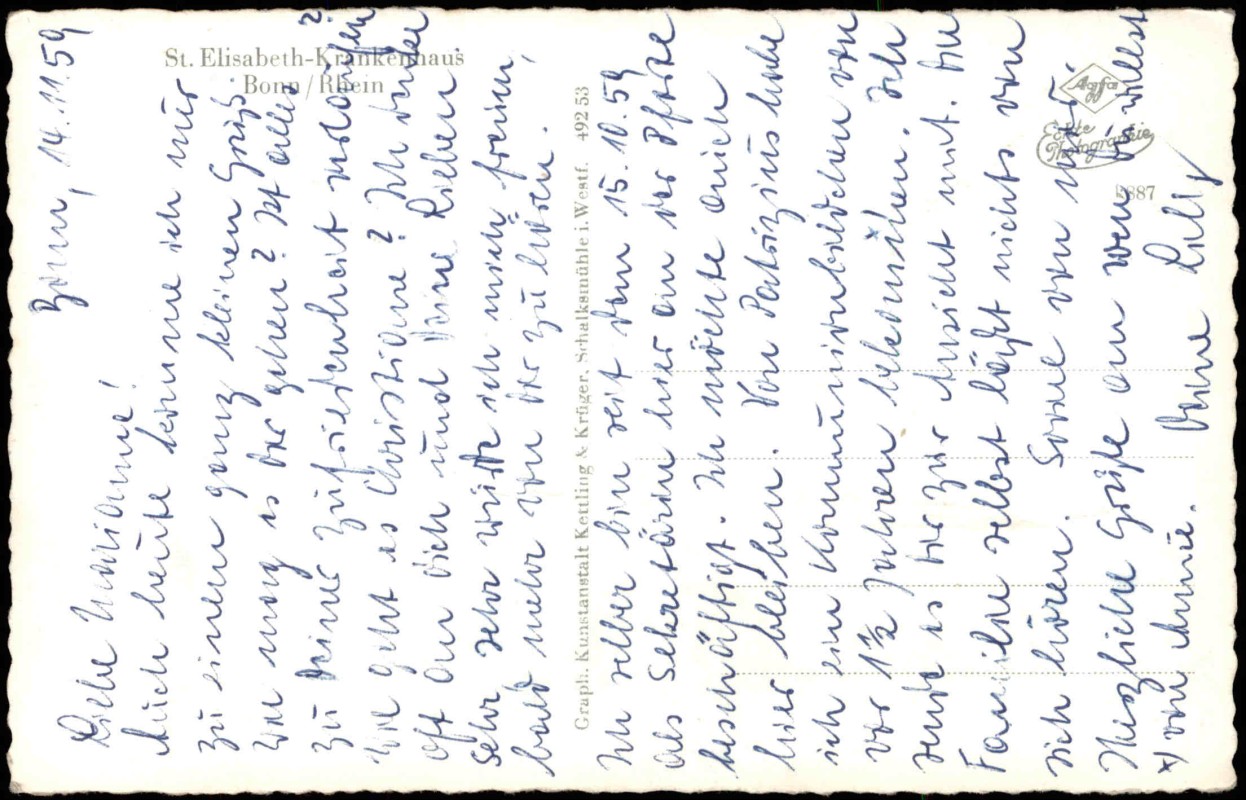 St. Elisabeth-Krankenhaus
Bonn/Rhein
Bonn, 14.11.59
Liebe Marianne!
Auch heute komme ich nur
zu einem ganz kleinen Gruß.
Wie mag es Dir gehen? Ist alles
zu Deiner Zufriedenheit verlaufen?
Wie geht es Christiane? Ich denke
oft an Dich und Deine Lieben
Sehr, sehr würde ich mich freuen,
bald mehr von Dir zu hören.
Graph. Kunstanstalt Kettling & Krüger, Schalksmühle i. Westf. 492 53
Ich selber bin seit dem 15.10.59
als Sekretärin hier an der Pforte
beschäftigt. Ich möchte auch
hier bleiben. Von Patrizius habe
ich ein Kommunionbildchen von
vor 1½ Jahren bekommen. Ich
sende es Dir zur Ansicht mit. Die
Familie selbst läßt nichts von
sich hören. Sonne von mir.
Herzliche Grüße an wen Du willst
Deine Lilly
x) von Annie.
Agfa
Echte
Photographie
B887